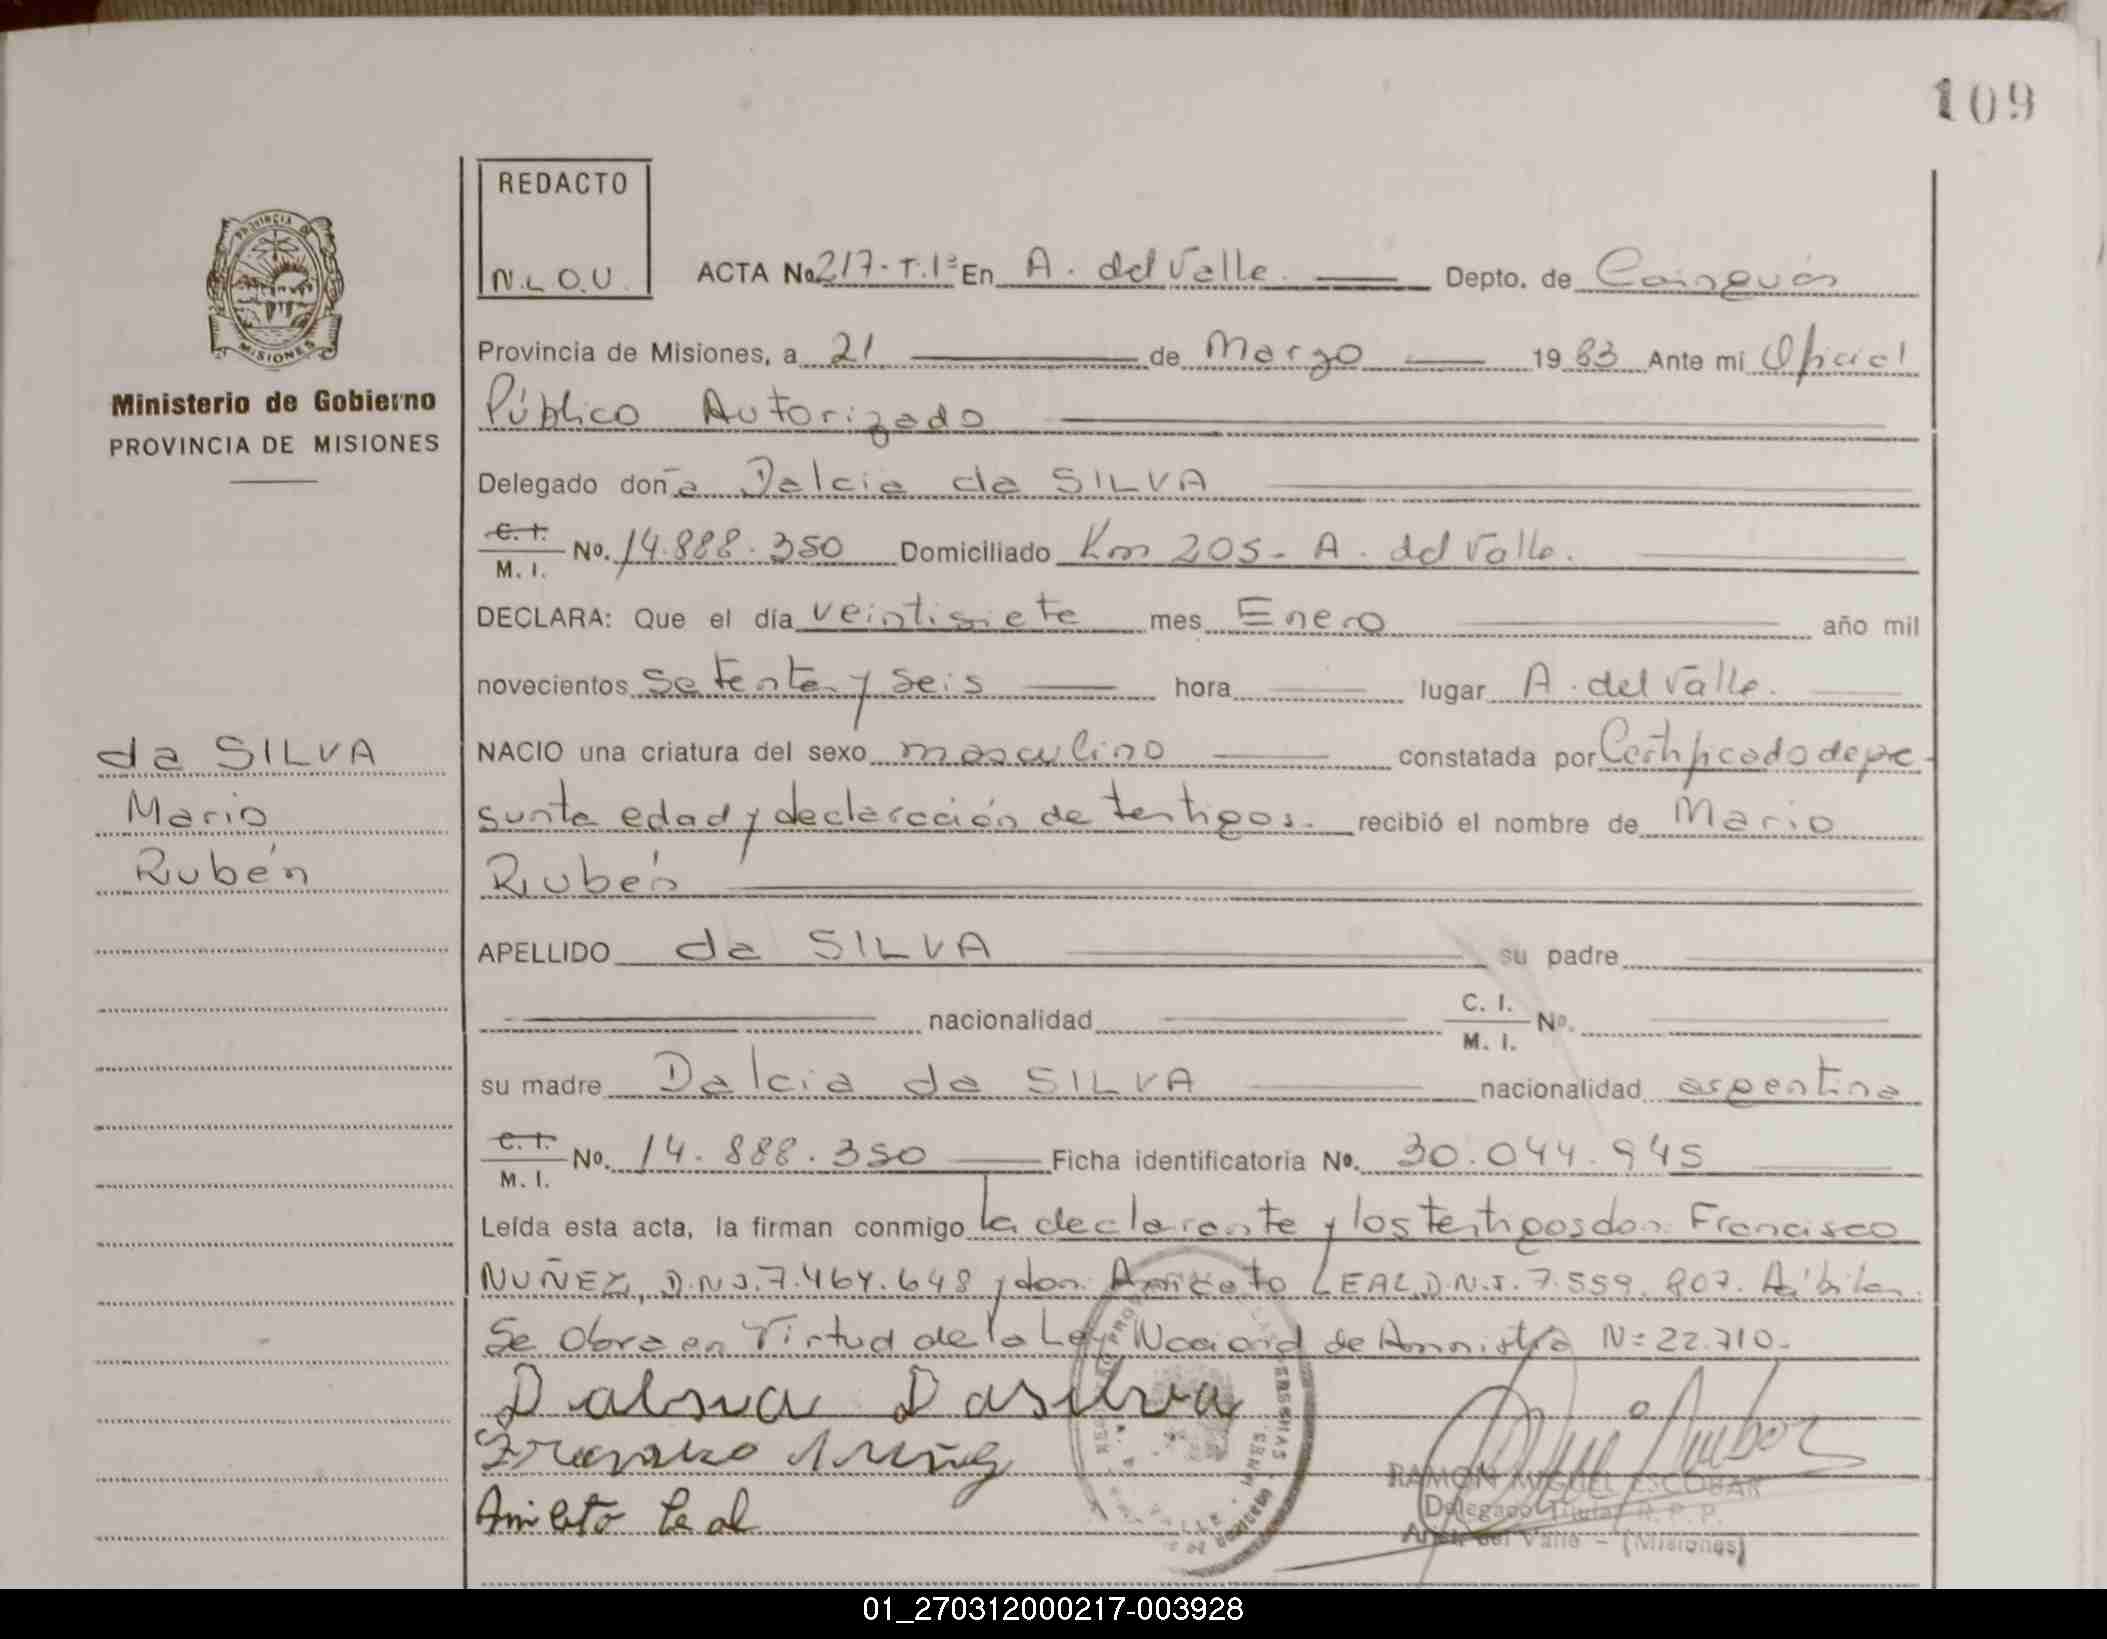 109
REDACTO
N.L.O.U.
PROVINCIA DE
MISIONES
Ministerio de Gobierno
PROVINCIA DE MISIONES
ACTA No. 217-T.1ª En A. del Valle. Depto. de Cainguás
Provincia de Misiones, a 21 de Marzo 1983 Ante mi Oficial
Público Autorizado
Delegado doña Dalcia da SILVA
C.I. M. I. No. 14.888.350 Domiciliado Km 205- A. del Valle.
DECLARA: Que el día veintisiete mes Enero año mil
novecientos setenta y seis hora lugar A. del Valle.
NACIO una criatura del sexo masculino constatada por Certificado de pre-
sunta edad y declaración de testigos. recibió el nombre de Mario
Rubén
da SILVA
Mario
Rubén
APELLIDO da SILVA su padre
nacionalidad C. I. M. I. No.
su madre Dalcia da SILVA nacionalidad argentina
C.I. M. I. No. 14.888.350 Ficha identificatoria No. 30.044.945
Leída esta acta, la firman conmigo la declarante y los testigos don Francisco
NUÑEZ, D.N.I. 7.464.648 y don Aniceto LEAL D.N.I. 7.559.807.
Se Obra en Virtud de la Ley Nacional de Amnistía Nº 22.710.
Dalsua Dasilva
Aniceto Leal
RAMON MIGUEL ESCOBAR
Delegado Titular R. P. P.
Arist. del Valle - (Misiones)
01_270312000217-003928